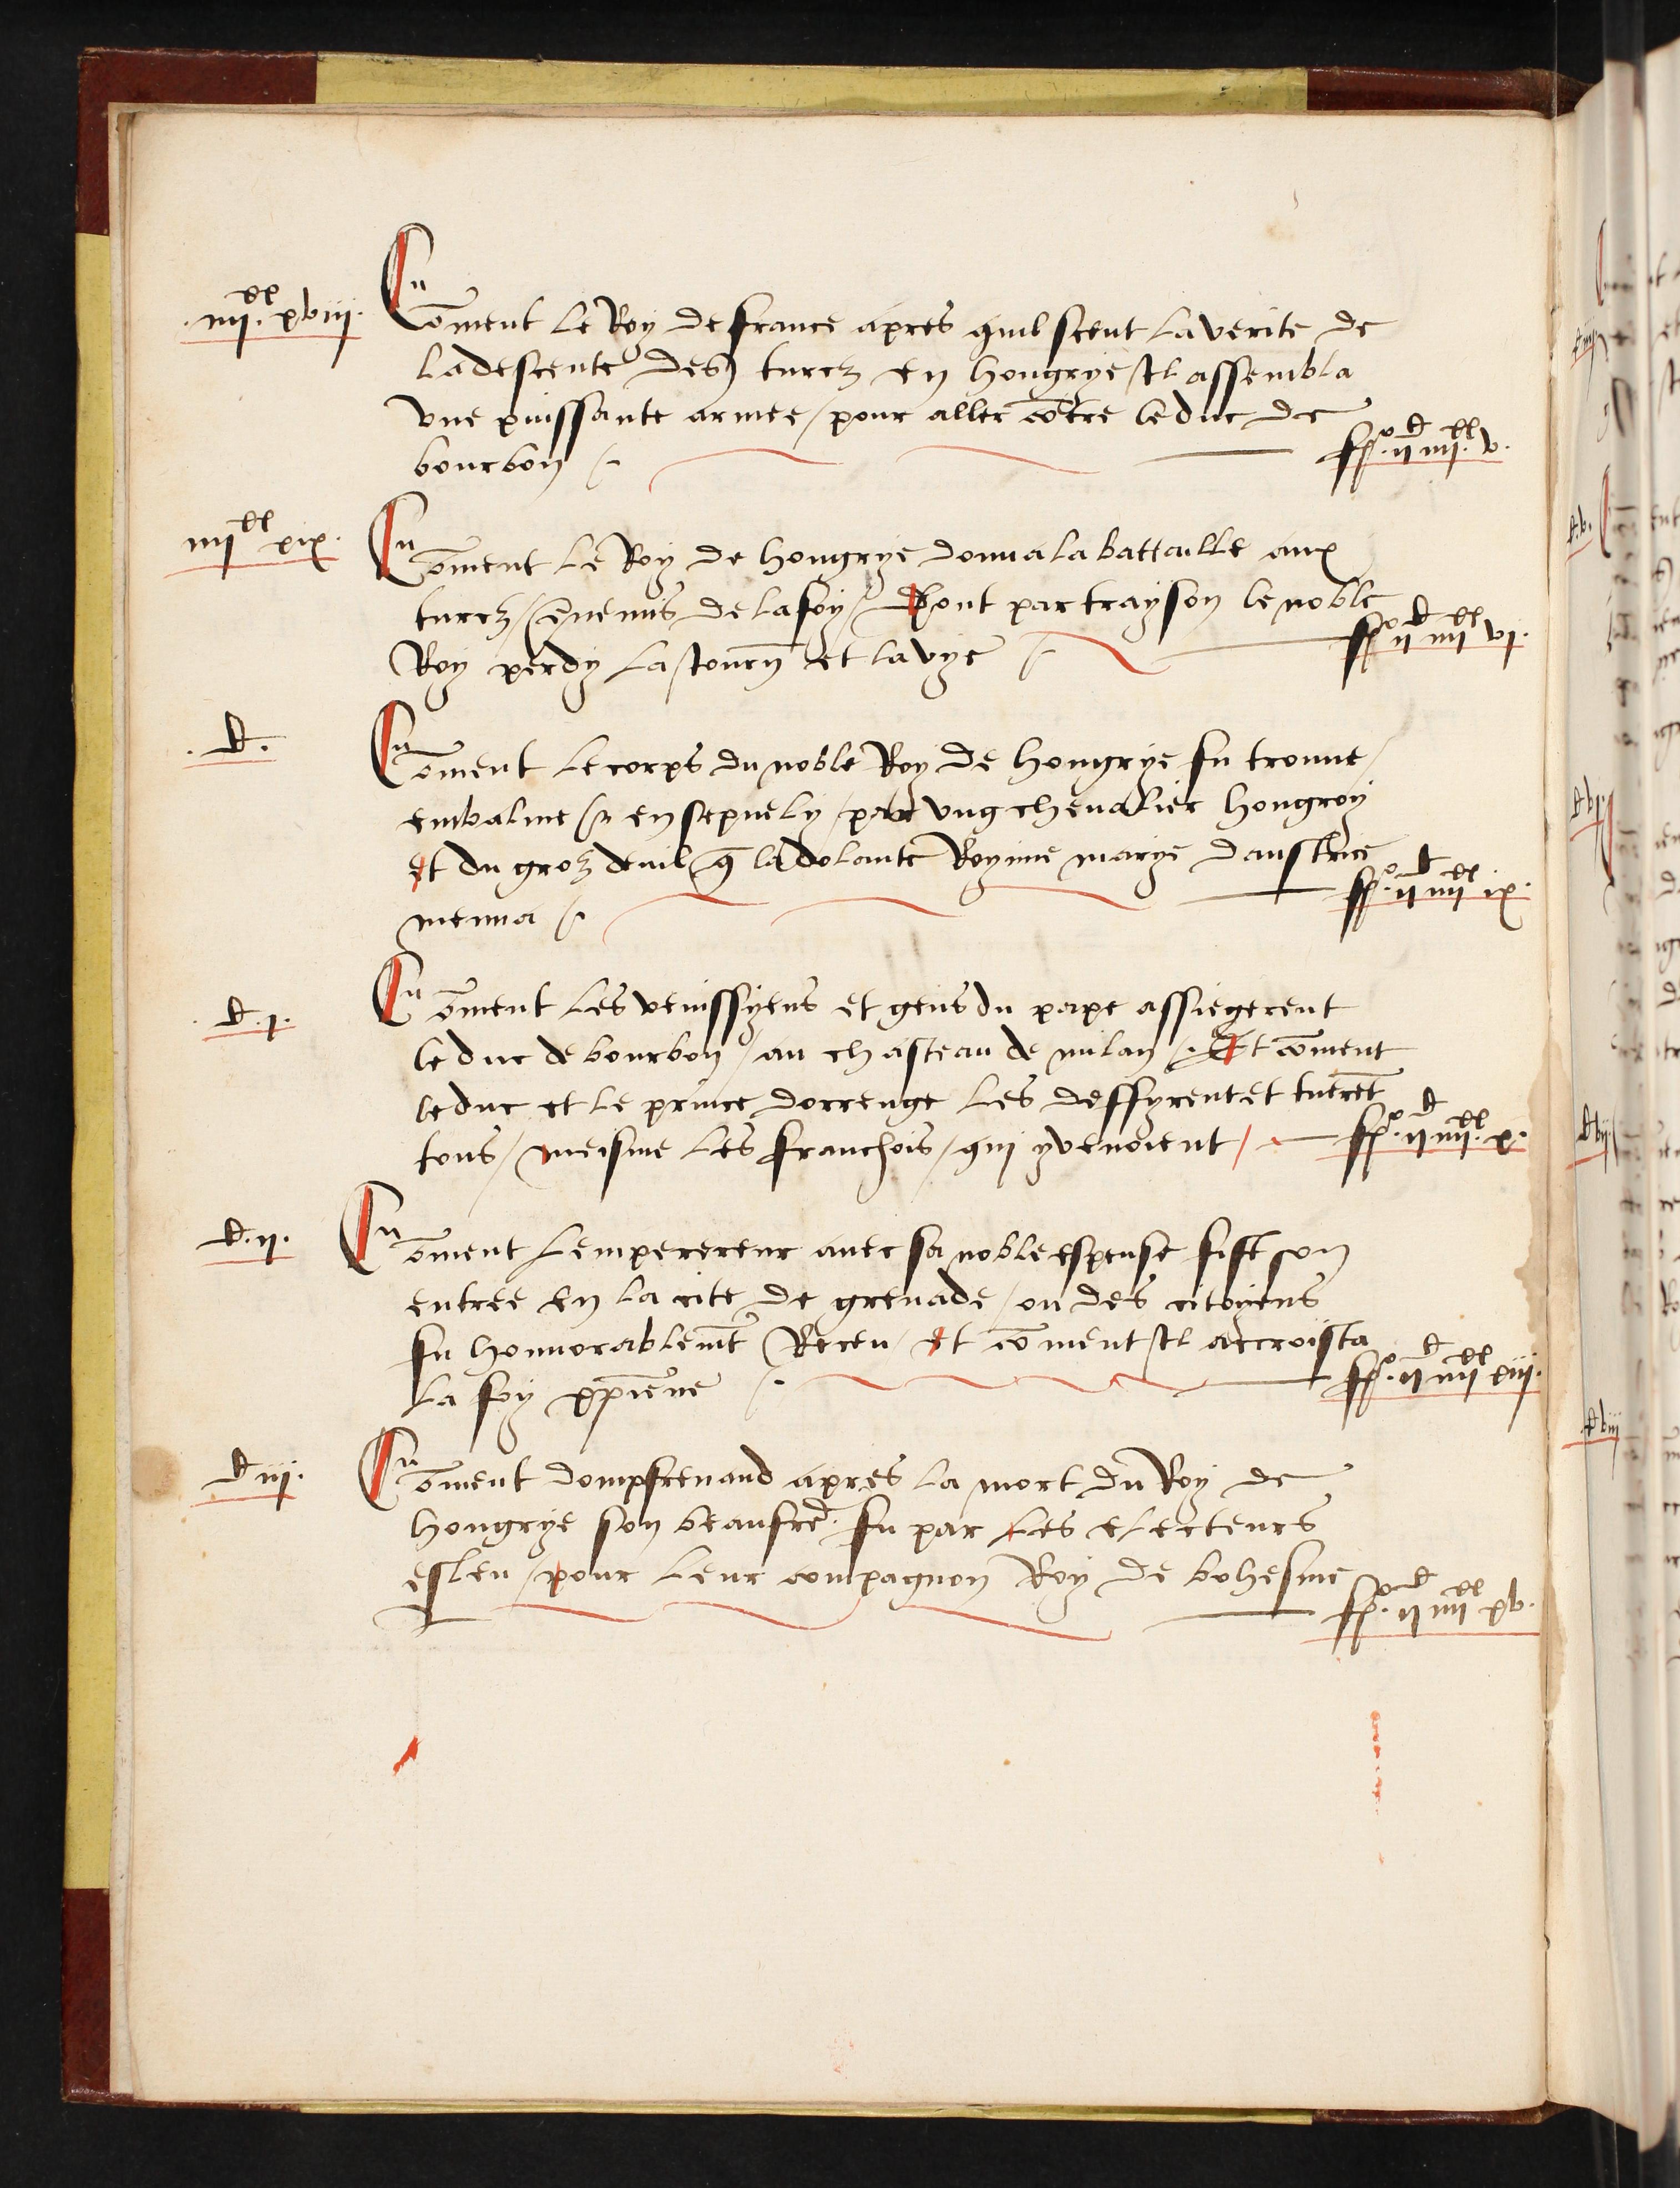 .iiij.xx xviij. Cõment le Roy de france apres quil sceut la verite de
la descente des turcz en hongrye / Il assembla
vne puissante armee / pour aller cõtre le duc de
bourbon /. fo. ijc iiijxx. v.
iiijxx xix. Cõment le Roy de hongrye donna la battaille aux
turcz / ẽnemis de la foy / Dont par trayson le noble
Roy perdy la Iourñ et la vye /. fo. ijc iiijxx vj.
.C. Cõment le corps du noble Roy de hongrye fu trouue /
embalme / en sepuely / par vng cheualier hongroy
Et du groz deuil q̃ la dolante Royine marye daustrice
menna /. fo. ijc iiijxx ix.
.C.j. Cõment les venissyens et gens du pape assiegerent
le duc de bourbon / au chasteau de milan /. Et cõment
le duc et le prince dorrenge les deffyrent et tuerẽt
tous / meisme les franchois / qui y venoient / fo. ijc iiijxx. x.
C.ij. Cõment Lempereur auec sa noble espeuse fist son
entree en la cite de grenade / ou des citoyens
fu honnorablemẽt Receu / Et cõment Il accroista
la foy xp̃iẽne /. fo. ijc iiijxx xiij.
C iij. Cõment dompfrenand apres la mort du Roy de
hongrye son beaufrẽ. fu par les electeurs
esleu / pour leur compagnon Roy de bohesme
fo. ijc iiijxx xv.